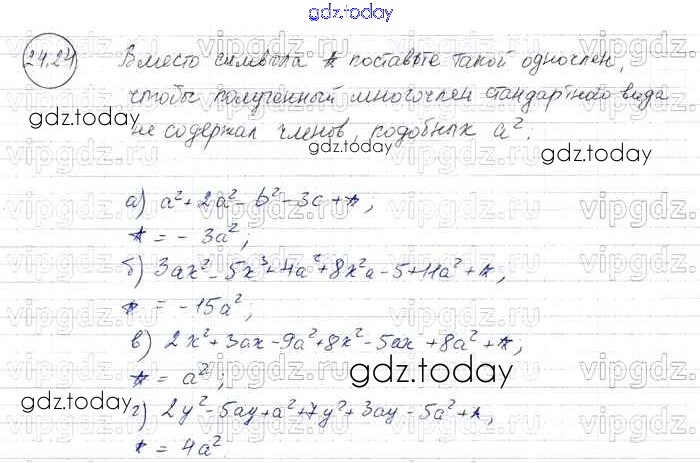 gdz.today
24.24 Вместо символа * поставьте такой одночлен,
чтобы полученный многочлен стандартного вида
gdz.today
не содержал членов, подобных a²:
gdz.today
а) a² + 2a² - b² - 3c + *,
* = - 3a²;
б) 3ax² - 5x³ + 4a² + 8x²a - 5 + 11a² + *,
* = -15a²;
в) 2x² + 3ax - 9a² + 8x² - 5ax + 8a² + *,
* = a²;
gdz.today
gdz.today
г) 2y² - 5ay + a² + 7y² + 3ay - 5a² + *,
* = 4a²